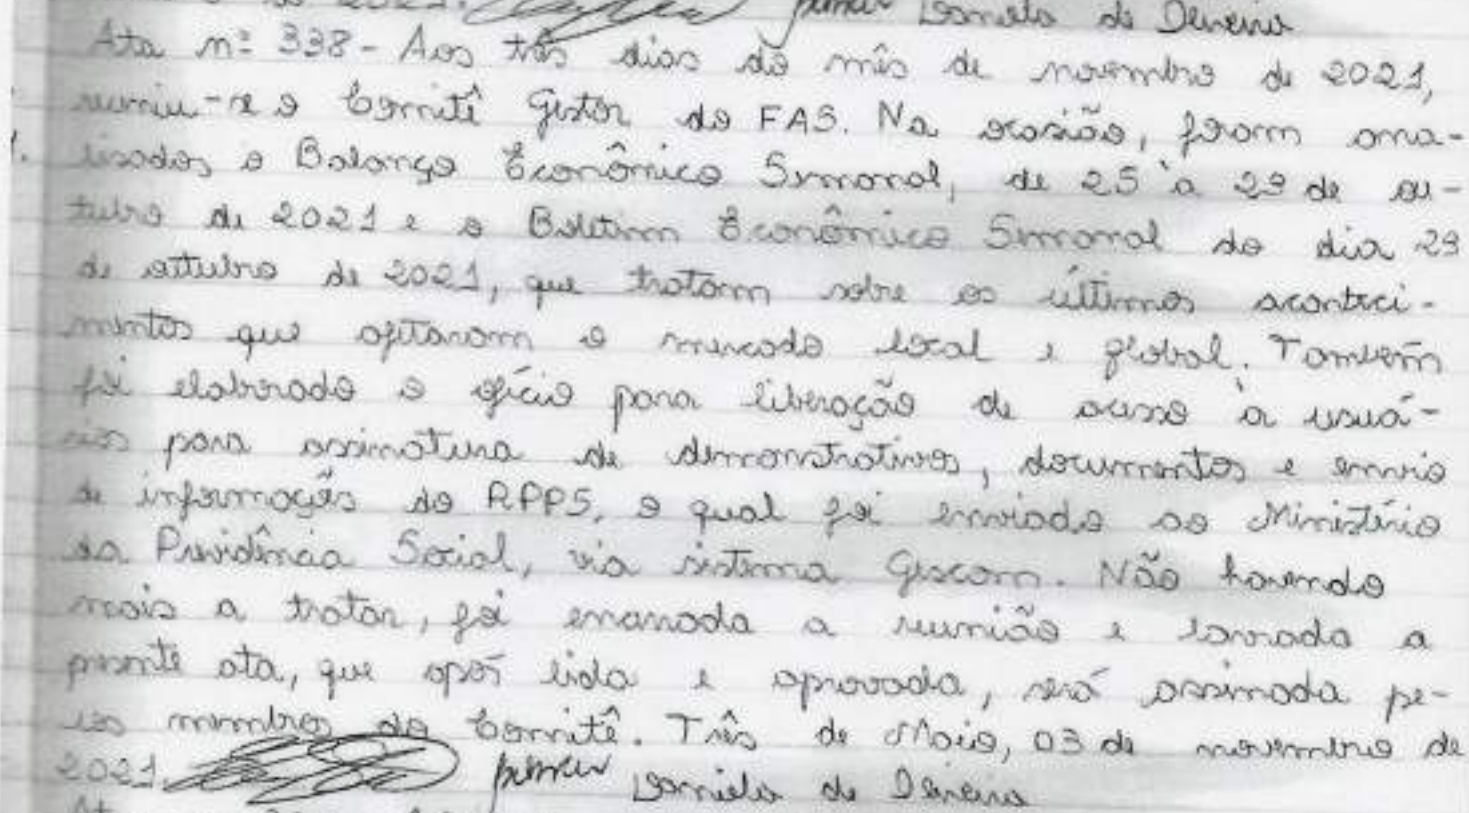 2021. Daniela de Oliveira
Ata nº 338 - Aos três dias do mês de novembro de 2021,
reuniu-se o Comitê Gestor do FAS. Na ocasião, foram ana-
lisados o Balanço Econômico Semanal, de 25 à 29 de ou-
tubro de 2021 e o Boletim Econômico Semanal do dia 29
de outubro de 2021, que tratam sobre os últimos aconteci-
mentos que afetaram o mercado local e global. Também
foi elaborado o ofício para liberação de acesso à usuá-
rios para assinatura de demonstrativos, documentos e envio
de informações do RPPS, o qual foi enviado ao Ministério
da Previdência Social, via sistema Gescon. Não havendo
mais a tratar, foi encerrada a reunião e lavrada a
presente ata, que após lida e aprovada, será assinada pe-
los membros do Comitê. Três de Maio, 03 de novembro de
2021. Daniela de Oliveira